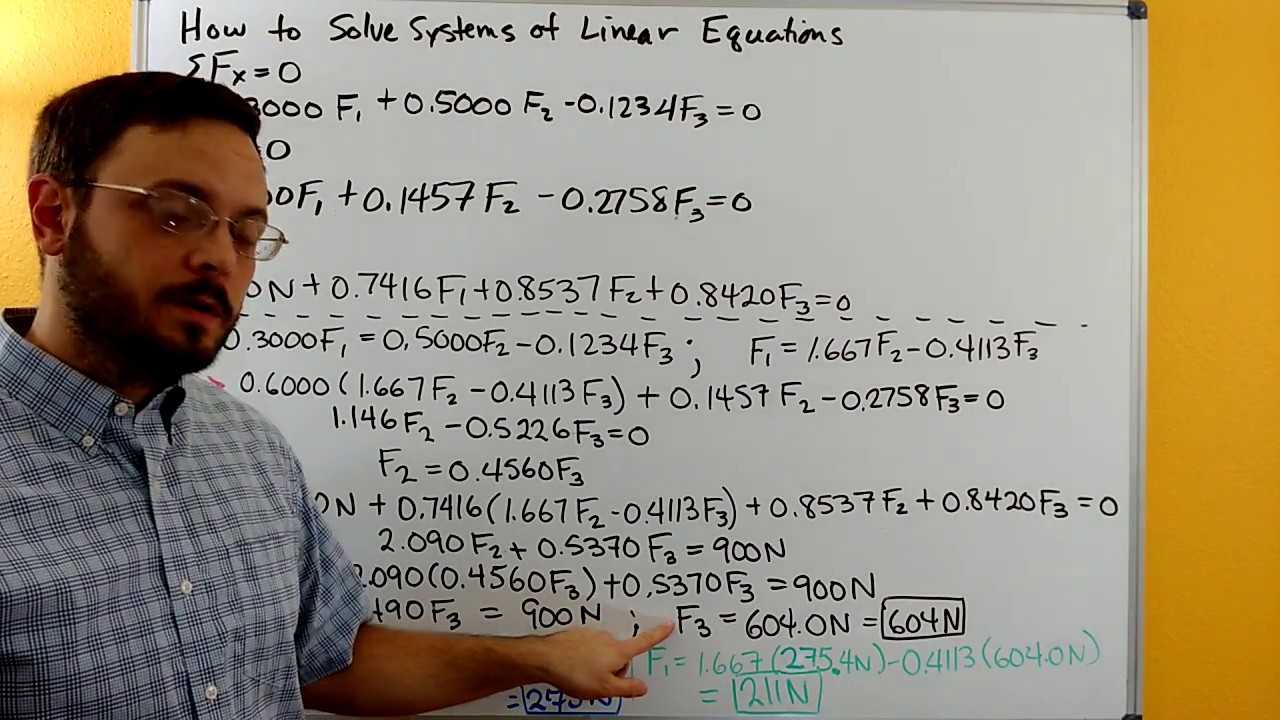 How to Solve Systems of Linear Equations
ΣFx = 0
3000 F₁ + 0.5000 F₂ - 0.1234F₃ = 0
0
0F₁ + 0.1457 F₂ - 0.2758F₃ = 0
N + 0.7416F₁ + 0.8537 F₂ + 0.8420F₃ = 0
0.3000F₁ = 0.5000F₂ - 0.1234F₃ ; F₁ = 1.667F₂ - 0.4113F₃
0.6000 (1.667F₂ - 0.4113F₃) + 0.1457 F₂ - 0.2758F₃ = 0
1.146F₂ - 0.5226F₃ = 0
F₂ = 0.4560F₃
0N + 0.7416(1.667F₂ - 0.4113F₃) + 0.8537F₂ + 0.8420F₃ = 0
2.090F₂ + 0.5370F₃ = 900N
2.090(0.4560F₃) + 0.5370F₃ = 900N
490F₃ = 900N ; F₃ = 604.0N = 604N
F₁ = 1.667(275.4N) - 0.4113(604.0N)
= 275N = 211N